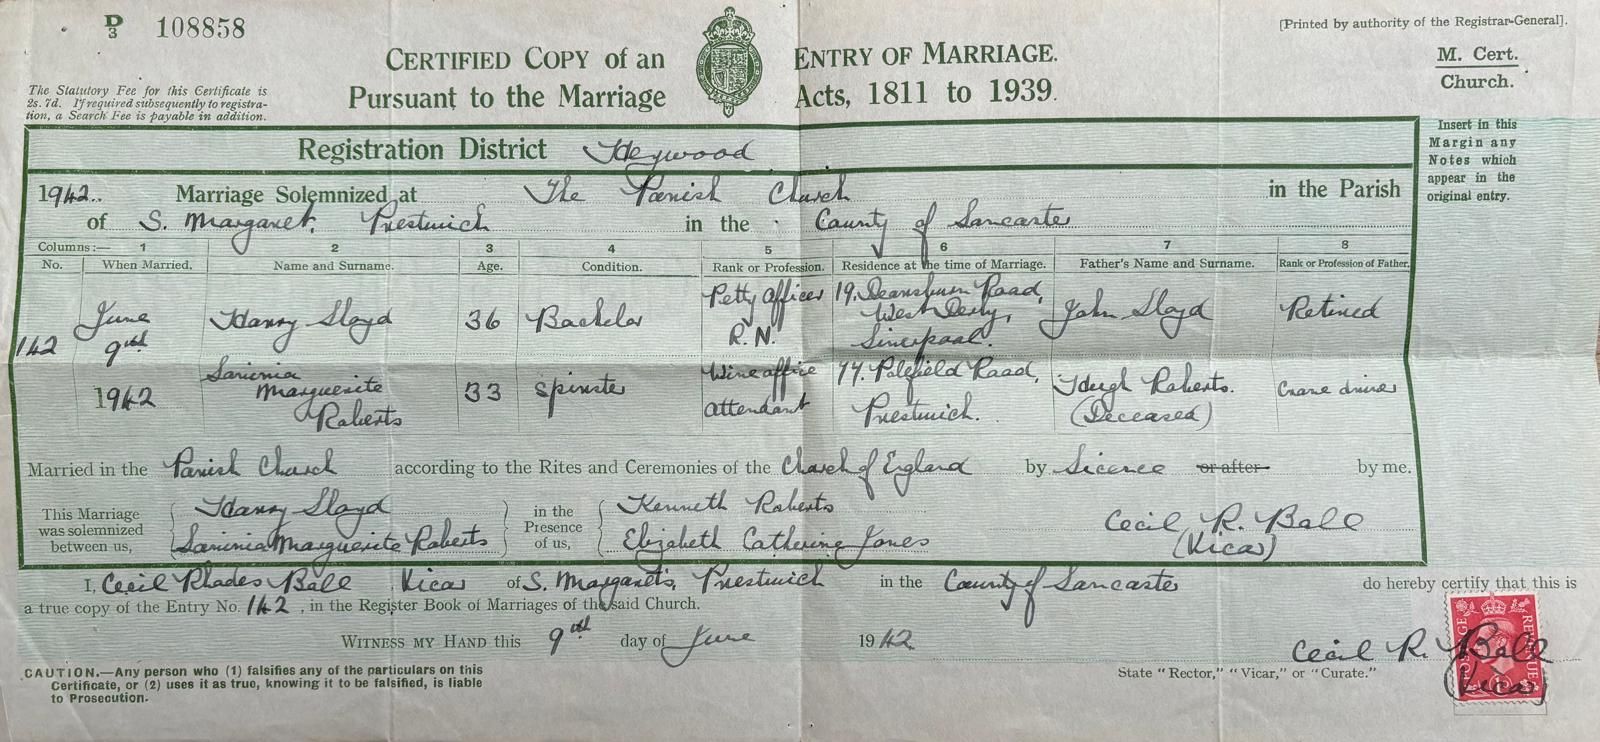 D/3 108858
[Printed by authority of the Registrar-General].
CERTIFIED COPY of an ENTRY OF MARRIAGE.
Pursuant to the Marriage Acts, 1811 to 1939.
M. Cert.
Church.
The Statutory Fee for this Certificate is
2s. 7d. If required subsequently to registra-
tion, a Search Fee is payable in addition.
Insert in this
Margin any
Notes which
appear in the
original entry.
Registration District Heywood
1942. Marriage Solemnized at The Parish Church in the Parish
of S. Margaret, Prestwich in the County of Lancaster
Columns:— 1 2 3 4 5 6 7 8
No. When Married. Name and Surname. Age. Condition. Rank or Profession. Residence at the time of Marriage. Father's Name and Surname. Rank or Profession of Father.
142 June 9th 1942
Harry Lloyd 36 Bachelor Petty Officer R.N. 19. Deansburn Road, West Derby, Liverpool. John Lloyd Retired
Lavinia Marguerite Roberts 33 Spinster Wine office attendant 77. Polefield Road, Prestwich. Hugh Roberts. (Deceased) Crane driver
Married in the Parish Church according to the Rites and Ceremonies of the Church of England by Licence or after by me.
This Marriage was solemnized between us, Harry Lloyd
Lavinia Marguerite Roberts
in the Presence of us, Kenneth Roberts
Elizabeth Catherine Jones
Cecil R. Ball
(Vicar)
I, Cecil Rhodes Ball Vicar of S. Margaret's, Prestwich in the County of Lancaster do hereby certify that this is
a true copy of the Entry No. 142, in the Register Book of Marriages of the said Church.
WITNESS MY HAND this 9th day of June 1942
Cecil R. Ball
(Vicar)
POSTAGE REVENUE
State "Rector," "Vicar," or "Curate."
CAUTION.—Any person who (1) falsifies any of the particulars on this
Certificate, or (2) uses it as true, knowing it to be falsified, is liable
to Prosecution.